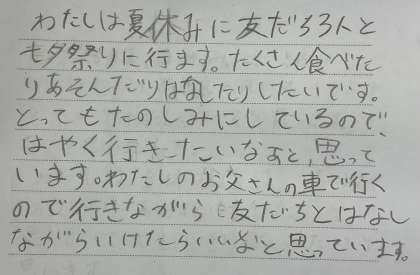 わたしは夏休みに友だち3人と
七夕祭りに行ます。たくさん食べた
りあそんだりはなしたりしたいです。
とってもたのしみにしているので、
はやく行きたいなあと、思って
います。わたしのお父さんの車で行く
ので行きながら友だちとはなし
ながらいけたらいいなと思っています。